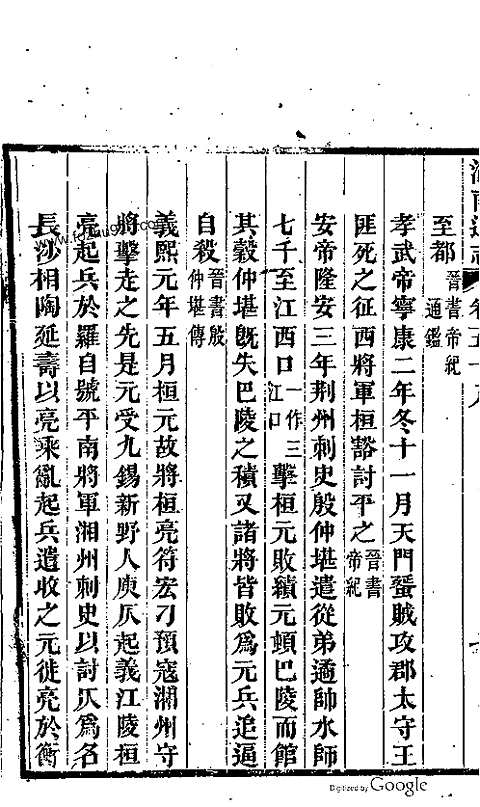 至都晉書帝紀通鑑
孝武帝寧康二年冬十一月天門蜑賊攻郡太守王
匪死之征西將軍桓豁討平之晉書帝紀
安帝隆安三年荆州刺史殷仲堪遣從弟遹師水師
七千至江西口一作三江口擊桓元敗績元頓巴陵而館
其穀仲堪旣失巴陵之積又諸將皆敗為元兵追逼
自殺晉書殷仲堪傳
義熙元年五月桓元故將桓亮符宏刁預寇湖州守
將擊走之先是元受九錫新野人庾仄起義江陵桓
亮起兵於羅自號平南將軍湘州刺史以討仄為名
長沙相陶延壽以亮乘亂起兵遣收之元徙亮於衡
Digitized by Google